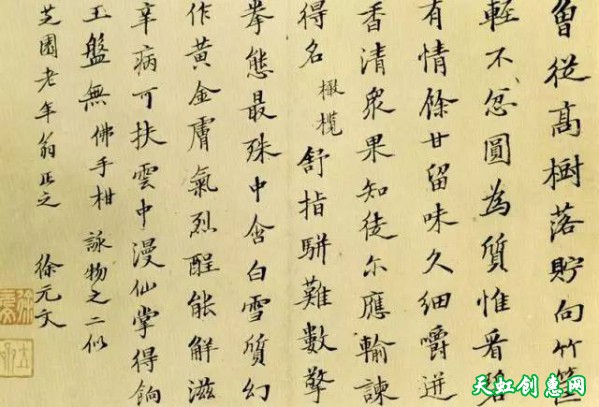 曾從高樹落貯向竹筐
輕不圓為質惟看碧
有情餘甘留味久細嚼迸
香清衆果知徒尔應輸諫
得名 橄欖 舒指駢難數擎
拳態最殊中含白雪質幻
作黃金膚氣烈醒能解滋
辛病可扶雲中漫仙掌得餉
玉盤無 佛手柑 詠物之二似
芝園老年翁正之 徐元文
天虹创惠网